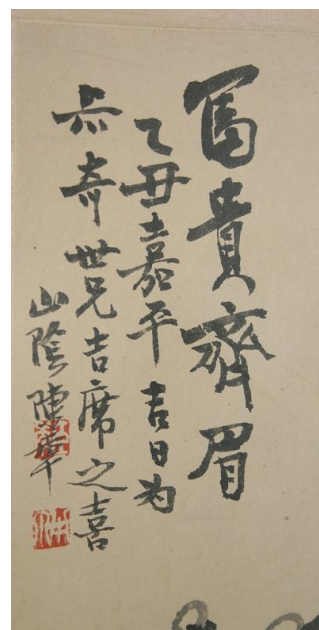 富貴齊眉
乙丑嘉平吉日为
尗奇世兄吉席之喜
山陰陳年